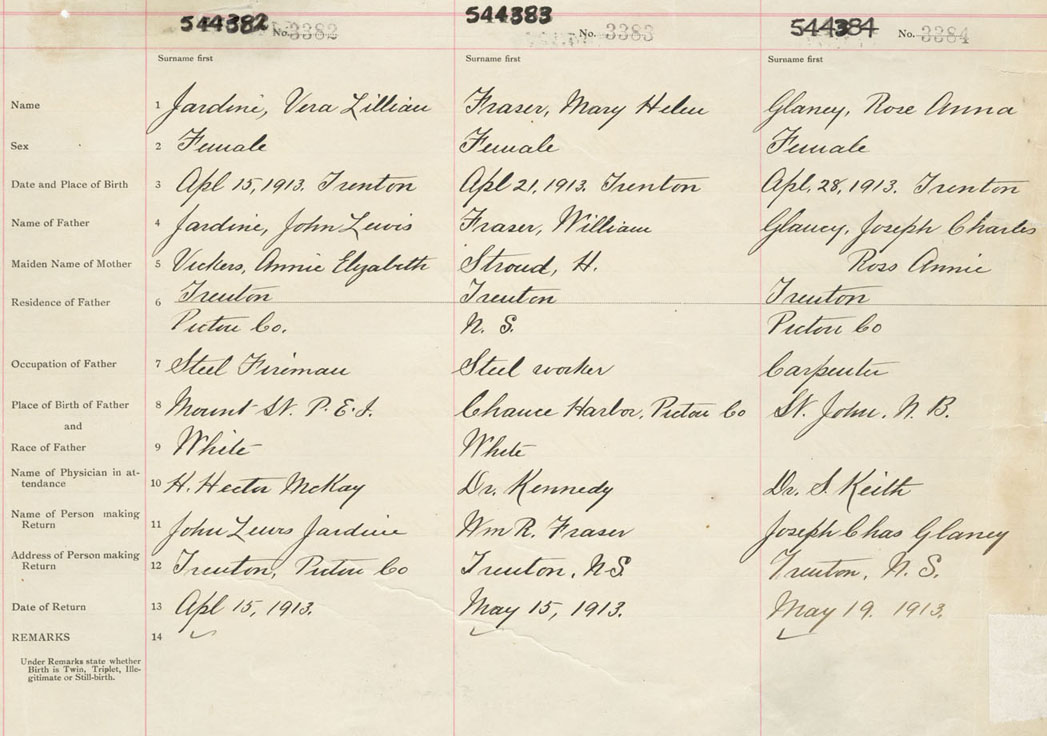 544382 No. 3382 544383 No. 3383 544384 No. 3384
Surname first Surname first Surname first
Name 1 Jardine, Vera Lillian Fraser, Mary Helen Glancy, Rose Anna
Sex 2 Female Female Female
Date and Place of Birth 3 Apl 15, 1913. Trenton Apl 21, 1913. Trenton Apl, 28, 1913. Trenton
Name of Father 4 Jardine, John Lewis Fraser, William Glancy, Joseph Charles
Maiden Name of Mother 5 Vickers, Annie Elyabeth Stroud, H. Ross Annie
Residence of Father 6 Trenton Trenton Trenton
Pictou Co. N. S. Pictou Co
Occupation of Father 7 Steel Fireman Steel worker Carpenter
Place of Birth of Father 8 Mount St. P. E. I. Chance Harbor, Pictou Co St. John, N. B.
and
Race of Father 9 White White
Name of Physician in at-
tendance 10 H. Hector McKay Dr. Kennedy Dr. S. Keith
Name of Person making
Return 11 John Lewis Jardine Wm R. Fraser Joseph Chas Glancy
Address of Person making
Return 12 Trenton, Pictou Co Trenton, N.S. Trenton, N. S.
Date of Return 13 Apl 15, 1913. May 15, 1913. May 19. 1913.
REMARKS 14
Under Remarks state whether
Birth is Twin, Triplet, Ille-
gitimate or Still-birth.